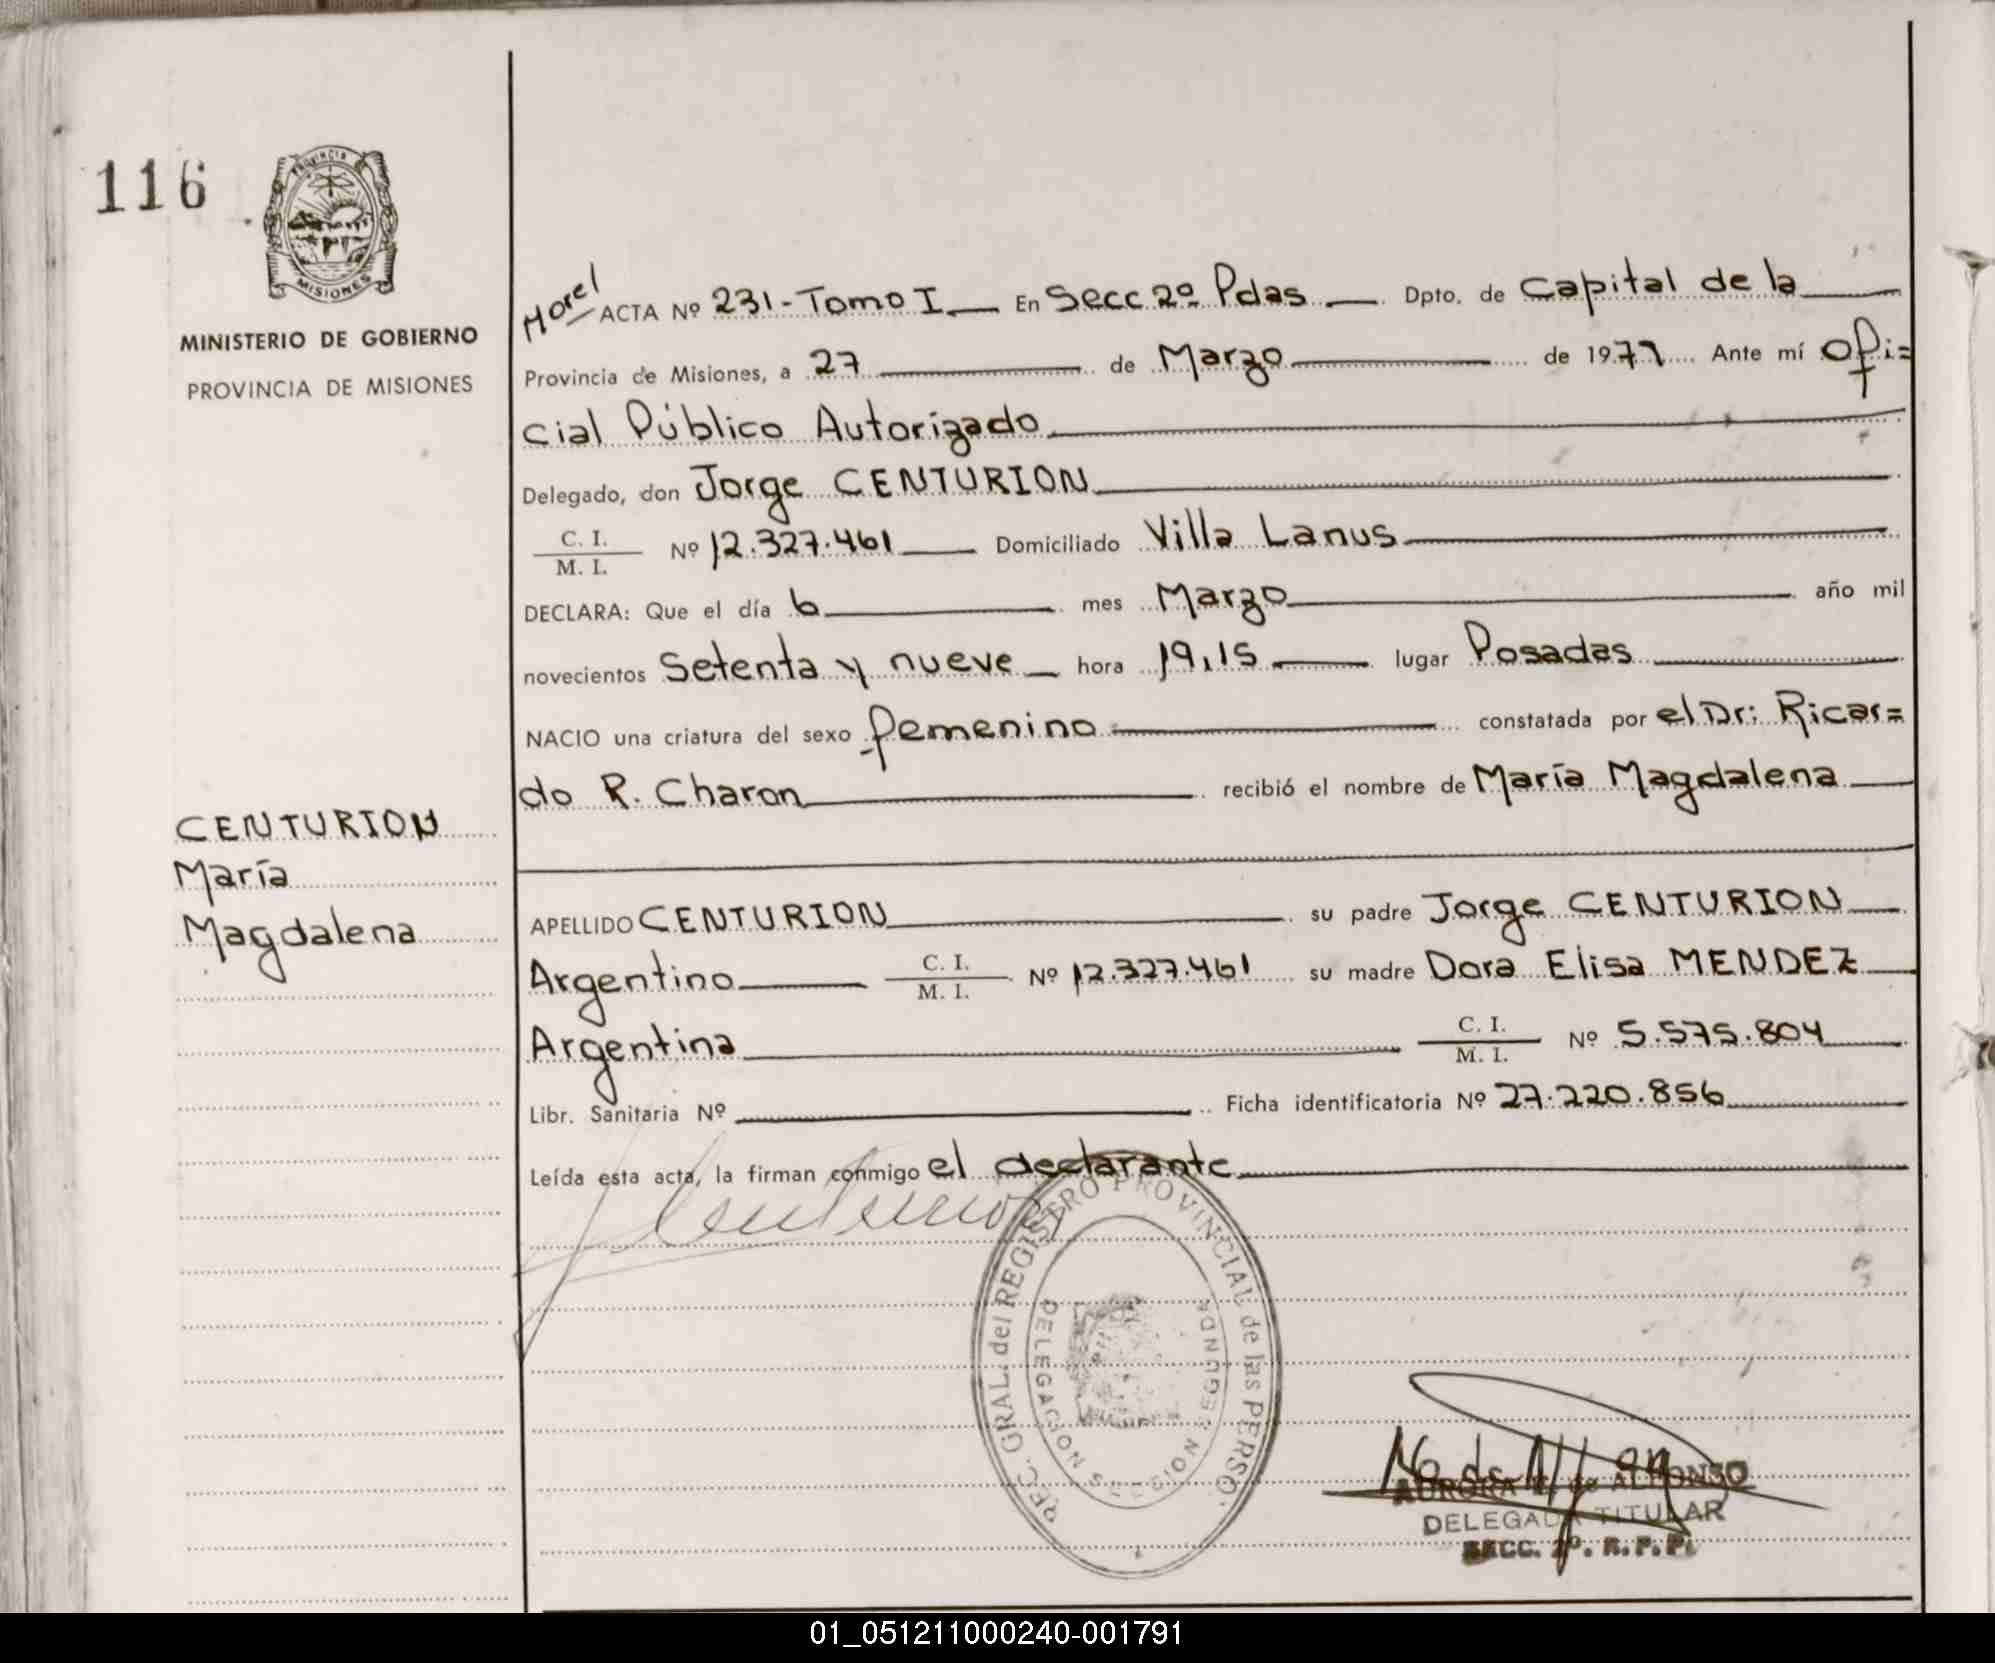 116
PROVINCIA DE
MISIONES
MINISTERIO DE GOBIERNO
PROVINCIA DE MISIONES
CENTURION
María
Magdalena
Morel
ACTA Nº 231-Tomo I En Secc 2º Pdas Dpto. de Capital de la
Provincia de Misiones, a 27 de Marzo de 1979 Ante mí Ofi=
cial Público Autorizado
Delegado, don Jorge CENTURION
C. I.
M. I. Nº 12.327.461 Domiciliado Villa Lanus
DECLARA: Que el día 6 mes Marzo año mil
novecientos Setenta y nueve hora 19,15 lugar Posadas
NACIO una criatura del sexo femenino constatada por el Dr: Ricar=
do R. Charon recibió el nombre de María Magdalena
APELLIDO CENTURION su padre Jorge CENTURION
Argentino C. I.
M. I. Nº 12.327.461 su madre Dora Elisa MENDEZ
Argentina C. I.
M. I. Nº 5.575.804
Libr. Sanitaria Nº Ficha identificatoria Nº 27.220.856
Leída esta acta, la firman conmigo el declarante
Centurion
GRAL. del REGISTRO PROVINCIAL de las PERSO
DELEGACION SEGUNDA
AURORA de ALFONSO
DELEGADA TITULAR
SECC. 2º. R.P.P.
01_051211000240-001791